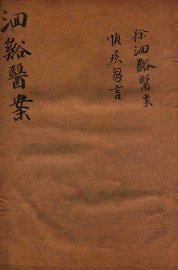 徐洄谿醫案
慎疾芻言
洄谿醫案